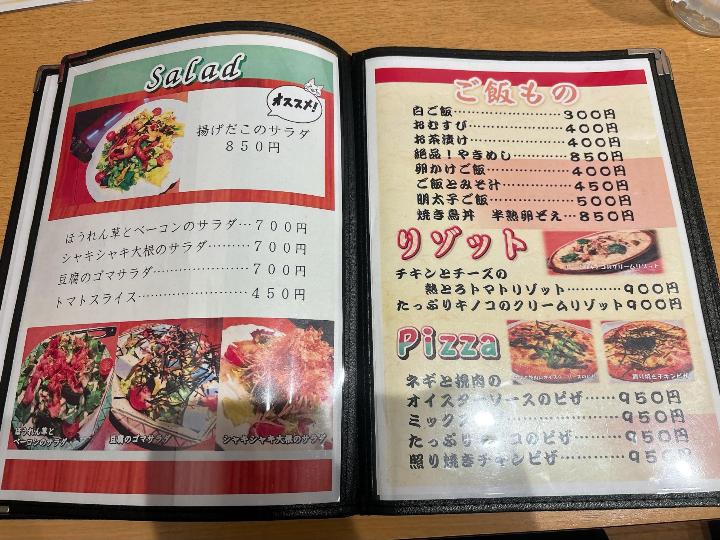 Salad
オススメ!
揚げだこのサラダ
850円
ほうれん草とベーコンのサラダ…700円
シャキシャキ大根のサラダ………700円
豆腐のゴマサラダ………………700円
トマトスライス…………………450円
ほうれん草と
ベーコンのサラダ
豆腐のゴマサラダ
シャキシャキ大根のサラダ
ご飯もの
白ご飯………………………300円
おむすび……………………400円
お茶漬け……………………400円
絶品!やきめし……………850円
卵かけご飯…………………400円
ご飯とみそ汁………………450円
明太子ご飯…………………500円
焼き鳥丼 半熟卵ぞえ…850円
リゾット
クリームリゾット
チキンとチーズの
熱とろトマトリゾット………900円
たっぷりキノコのクリームリゾット900円
Pizza
照り焼きチキンピザ
ネギと挽肉の
オイスターソースのピザ……950円
ミックス 950円
たっぷり コのピザ………950円
照り焼きチキンピザ…………950円